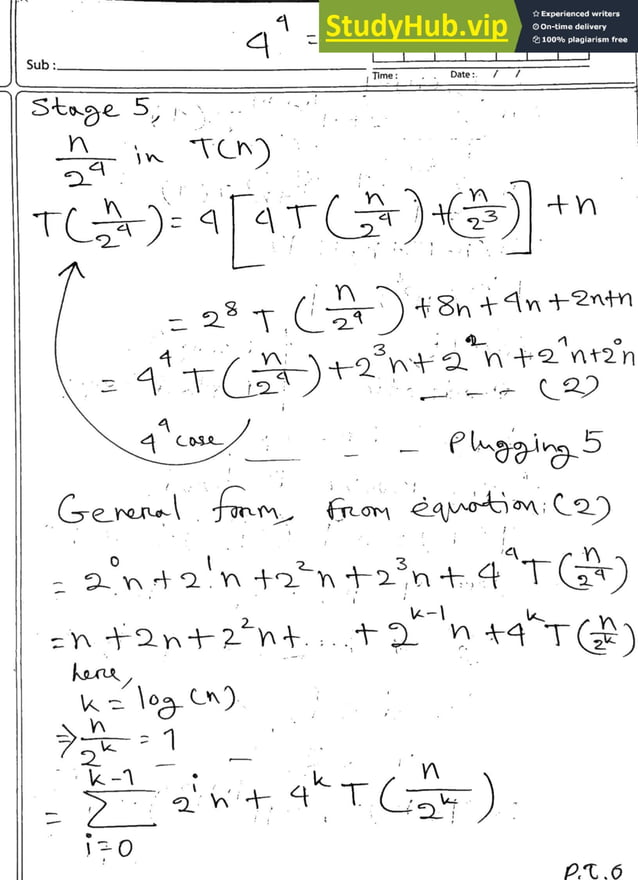 StudyHub.vip
Experienced writers
On-time delivery
100% plagiarism free
4^4 =
Sub :
Time : Date : / /
Stage 5,
n/2^4 in T(n)
T(n/2^4) = 4[4T(n/2^4) + (n/2^3)] + n
= 2^8 T(n/2^4) + 8n + 4n + 2n + n
= 4^4 T(n/2^4) + 2^3n + 2^2n + 2^1n + 2^0n
- - - (2)
4^4 case - - - Plugging 5
General form, from equation: (2)
= 2^0n + 2^1n + 2^2n + 2^3n + 4^4 T(n/2^4)
= n + 2n + 2^2n + .... + 2^(k-1)n + 4^k T(n/2^k)
here,
k = log(n)
⇒ n/2^k = 1
= Σ_{i=0}^{k-1} 2^i n + 4^k T(n/2^k)
P.T.O